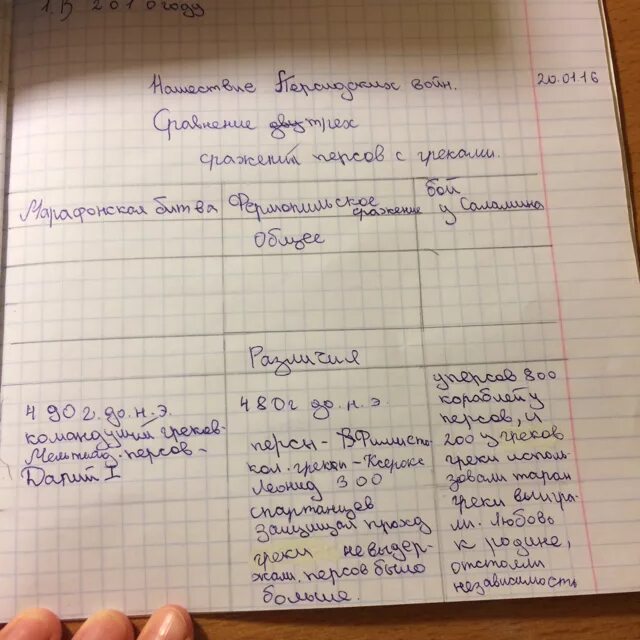 1.В 2010 году
Нашествие Персидских войн.
20.01.16
Сравнение двух трех
сражений персов с греками.
Марафонская битва
Фермопильское
сражение
бой
у Саламина
Общее
Различия
490 г. до. н. э.
командущий греков-
персов -
Дарий I
480 г до. н. э.
персы -
кол. греки - Ксеркс
Леонид 300
спартанцев
защищал проход
греки не выдер-
жали. персов было
больше.
у персов 800
кораблей у
персов, и
200 у греков
греки исполь-
зовали таран
греки выигра-
ли. Любовь
к родине,
отстояли
независимость